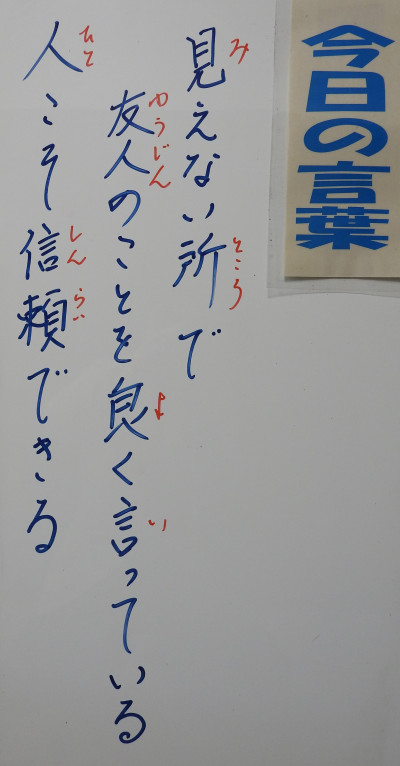 今日の言葉
見えない所で
友人のことを良く言っている
人こそ信頼できる
み
ところ
ゆうじん
よ
い
ひと
しん らい